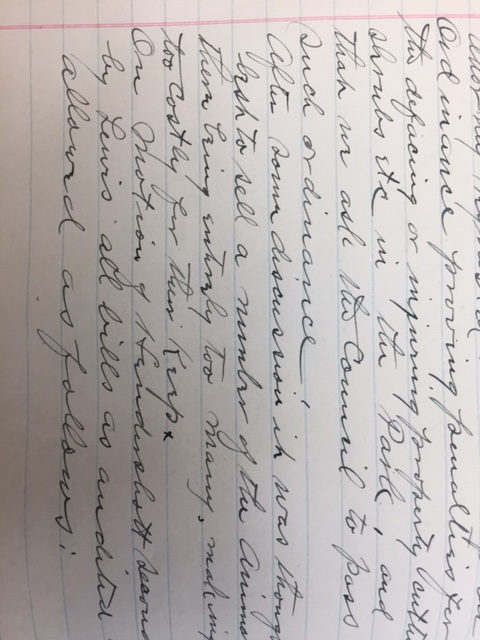 Ordinance proving penalties for
the defacing or injuring property
shrubs etc in the Park, and
that we ask the Council to pass
such ordinance
After some discussion it was though
best to sell a number of the Anima
there being entirely too many, making
too costly for their Keep.
On Motion of Hendershott
by Lewis all bills as audited
allowed as follows: